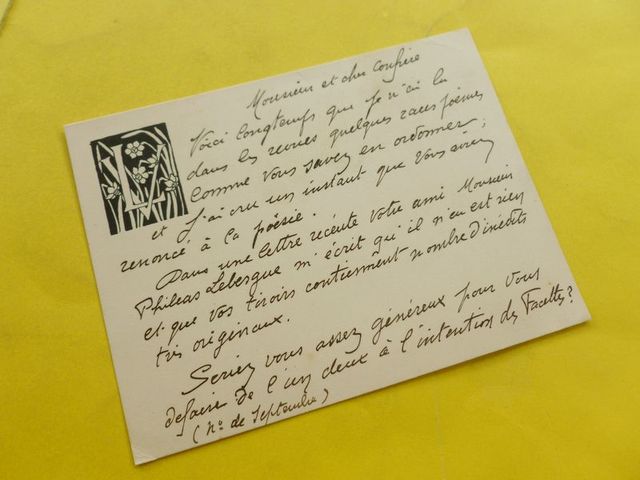 Monsieur et cher confrère
Voici longtemps que je n'ai lu
dans les revues quelques rares poèmes
comme vous savez en ordonner
et j'ai cru un instant que vous aviez
renoncé à la poésie.
Dans une lettre récente votre ami Monsieur
Phileas Lebesgue m'écrit qu'il n'en est rien
et que vos tiroirs contiennent nombre d'inédits
très originaux.
Seriez vous assez généreux pour vous
défaire de l'un deux à l'intention des Facettes?
(No de Septembre)